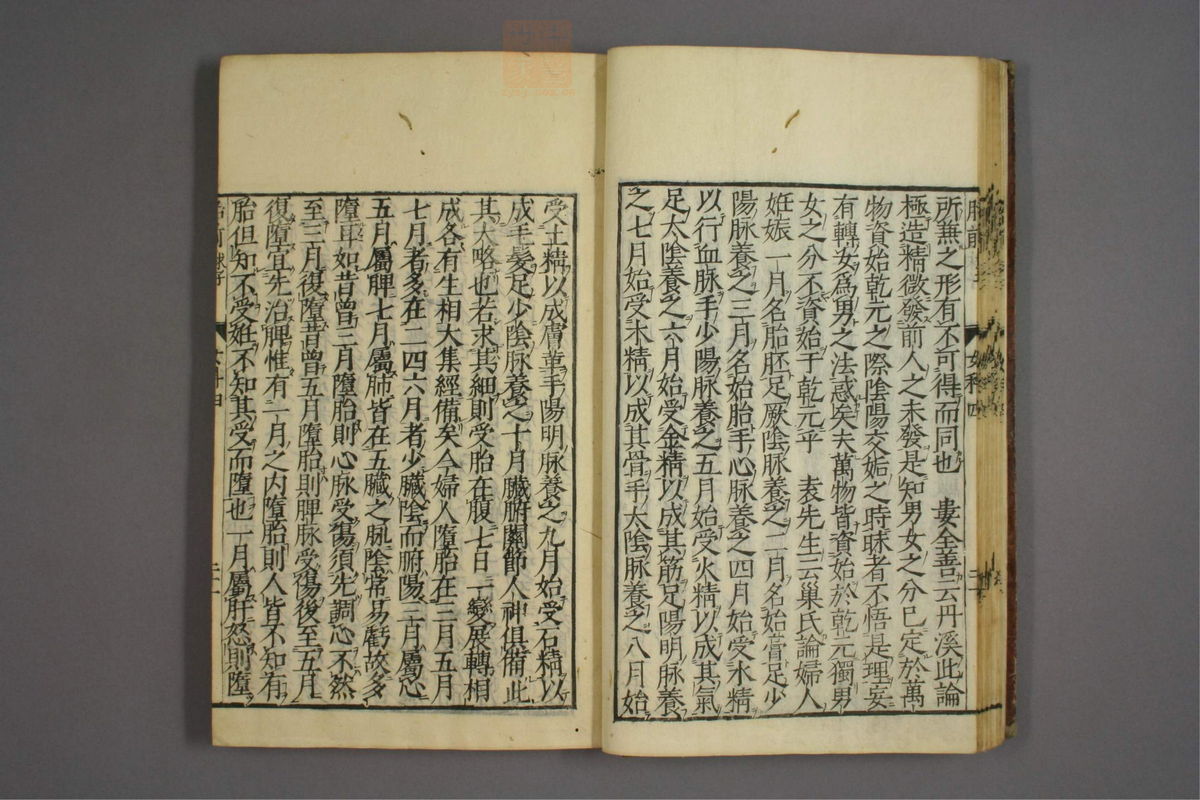 所無之形有不可得而同也　婁全善云丹溪此論
極造精微發前人之未發是知男女之分已定於萬
物資始乾元之際陰陽交姤之時昧者不悟是理妄
有轉女爲男之法惑矣夫萬物皆資始於乾元獨男
女之分不資始于乾元乎　袁先生云巢氏論婦人
妊娠一月名胎胚足厥陰脉養之二月名始膏足少
陽脉養之三月名始胎手心脉養之四月始受水精
以行血脉手少陽脉養之五月始受火精以成其氣
足太陰養之六月始受金精以成其筋足陽明脉養
之七月始受木精以成其骨手太陰脉養之八月始
受土精以成膚革手陽明脉養之九月始受石精以
成毛髮足少陰脉養之十月臟腑關節人神俱備此
其大略也若求其細則受胎在腹七日一變展轉相
成各有生相大集經備矣今婦人墮胎在三月五月
七月者多在二四六月者少臟陰而腑陽三月屬心
五月屬脾七月屬肺皆在五臟之脉陰常易虧故多
墮耳如昔曾三月墮胎則心脉受傷須先調心不然
至三月復墮昔曾五月墮胎則脾脉受傷後至五月
復墮宜先治脾惟有一月之内墮胎則人皆不知有
胎但知不受妊不知其受而墮也一月屬肝怒則墮